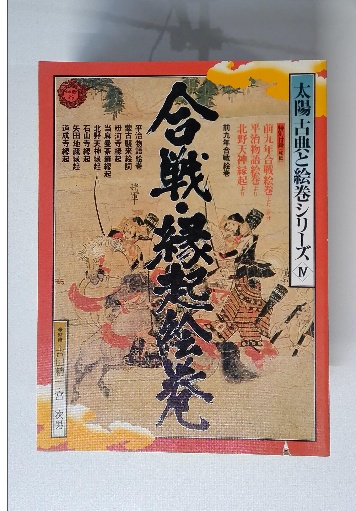 太陽古典と絵巻シリーズ〈Ⅳ〉
前九年合戦絵巻より
平治物語絵巻より
北野天神縁起より
合戦・縁起絵巻
前九年合戦絵巻
平治物語絵巻
蒙古襲来絵詞
粉河寺縁起
当麻曼荼羅縁起
北野天神縁起
石山寺縁起
矢田地蔵縁起
道成寺縁起
宮 次男